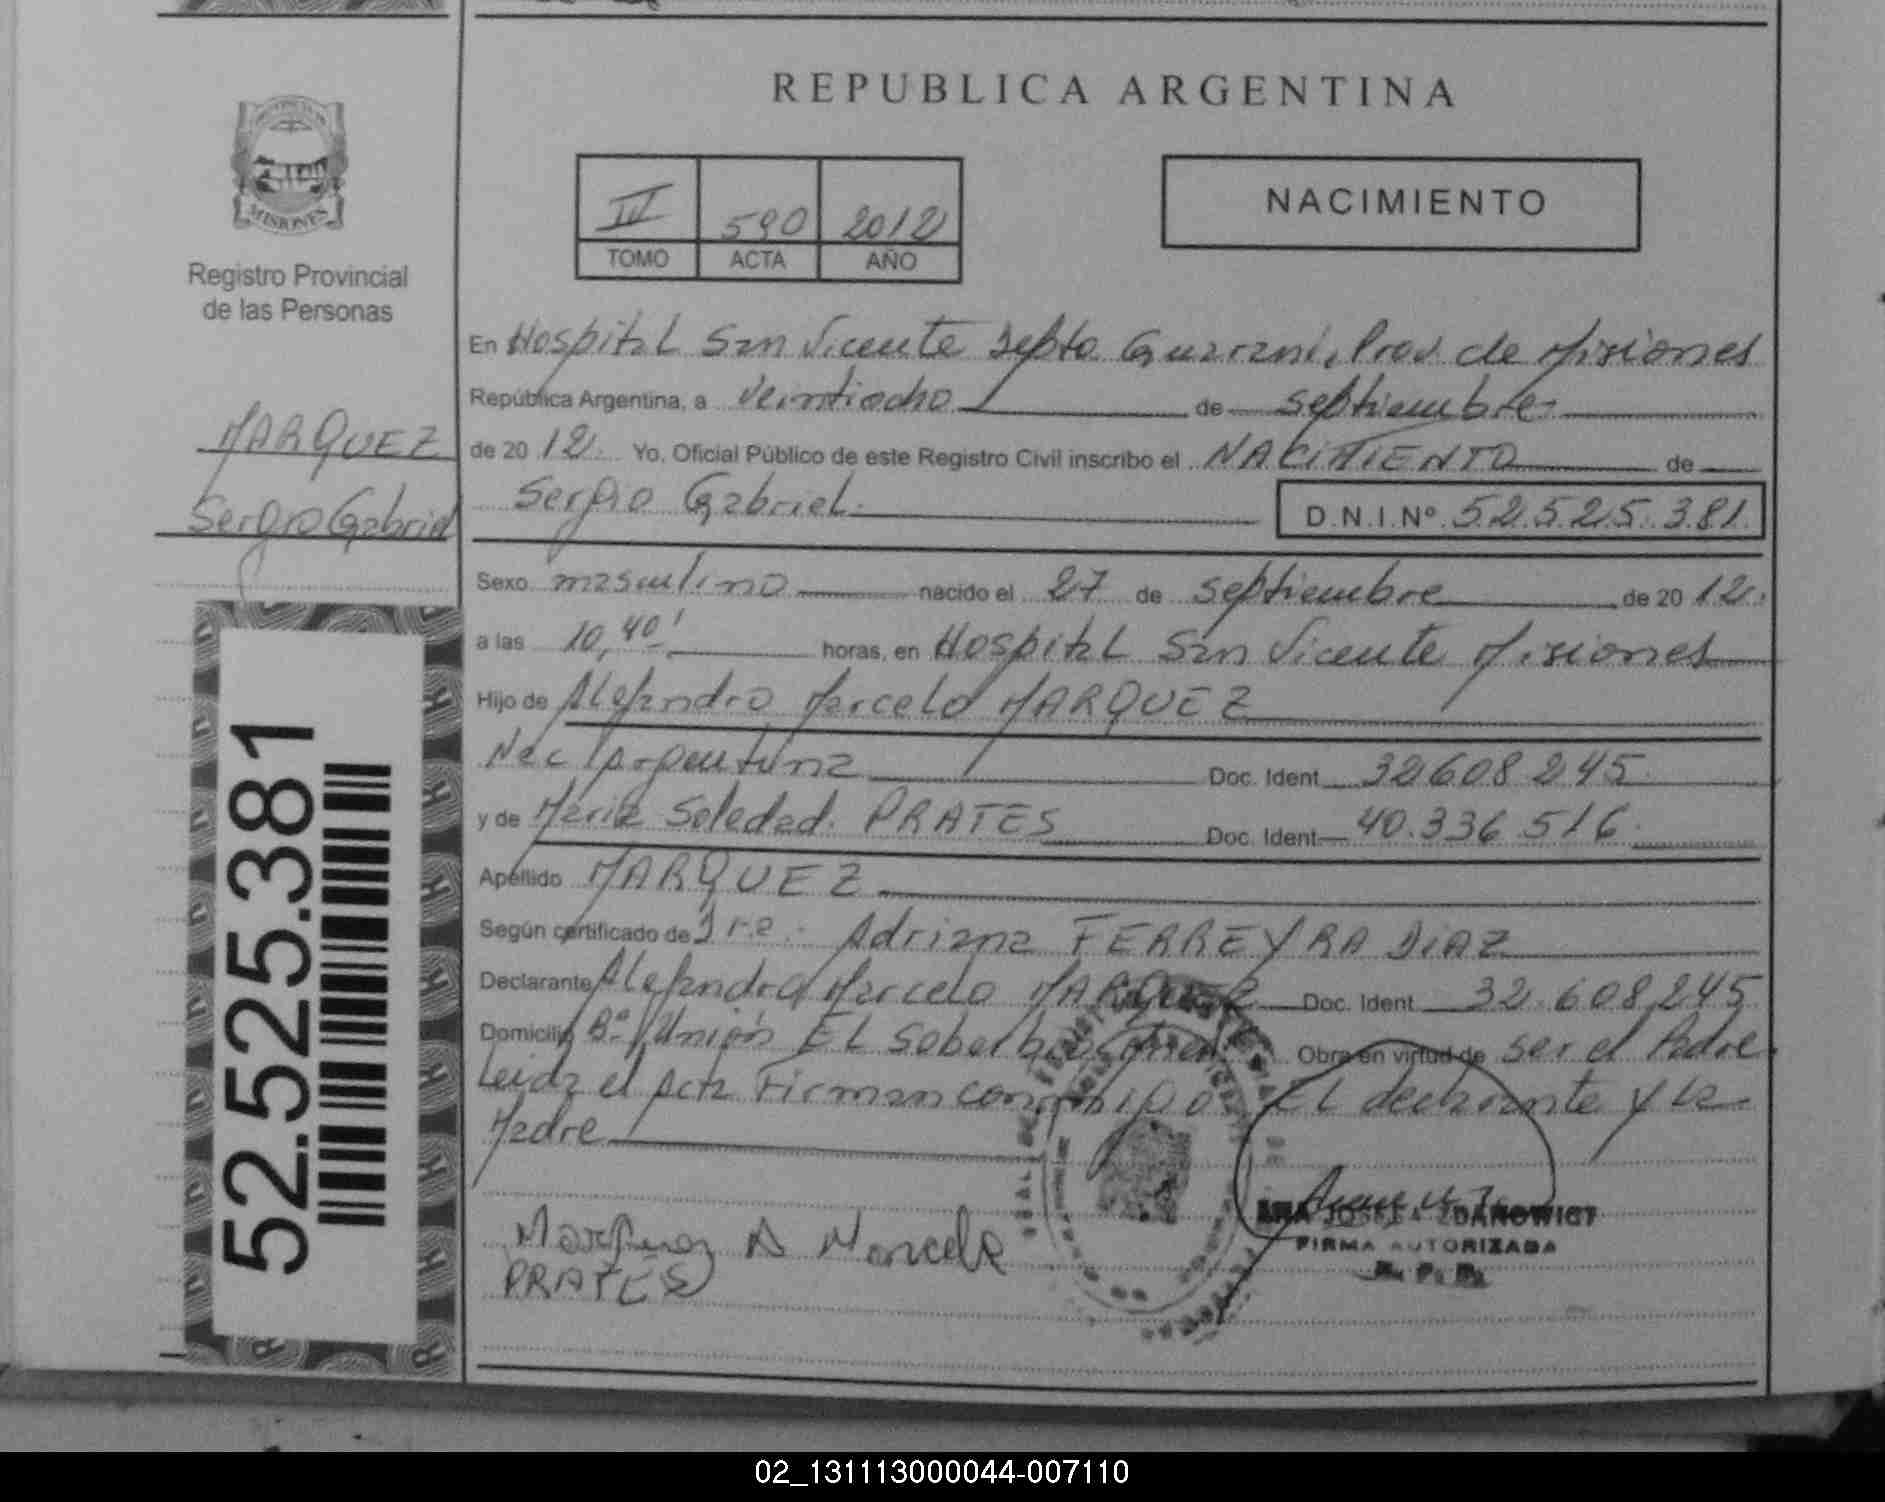 REPUBLICA ARGENTINA
MISIONES
Registro Provincial
de las Personas
590 2012
TOMO ACTA AÑO
NACIMIENTO
MARQUEZ
Sergio Gabriel
52.525.381
En Hospital San Vicente Depto Guarani, Prov. de Misiones
República Argentina, a veintiocho de septiembre
de 2012. Yo, Oficial Público de este Registro Civil inscribo el NACIMIENTO de
Sergio Gabriel. D.N.I.Nº 52.525.381.
Sexo masculino nacido el 27 de septiembre de 2012.
a las 10,40' horas, en Hospital San Vicente Misiones
Hijo de Alejandro Marcelo MARQUEZ
Nac Argentina Doc. Ident. 32608245
y de Maria Soledad PRATES Doc. Ident 40.336.516.
Apellido MARQUEZ
Según certificado de Adriana FERREYRA DIAZ
Declarante Alejandro Marcelo MARQUEZ Doc. Ident. 32.608.245
Domicilio Bº Union EL Soberbio Obra en virtud de ser el Padre
Leida el Acta Firman conmigo EL declarante y la
Madre
Marquez A Marcelo
PRATES
ANA JOSEFA ZDANOWICT
FIRMA AUTORIZADA
R. P. P.
02_131113000044-007110